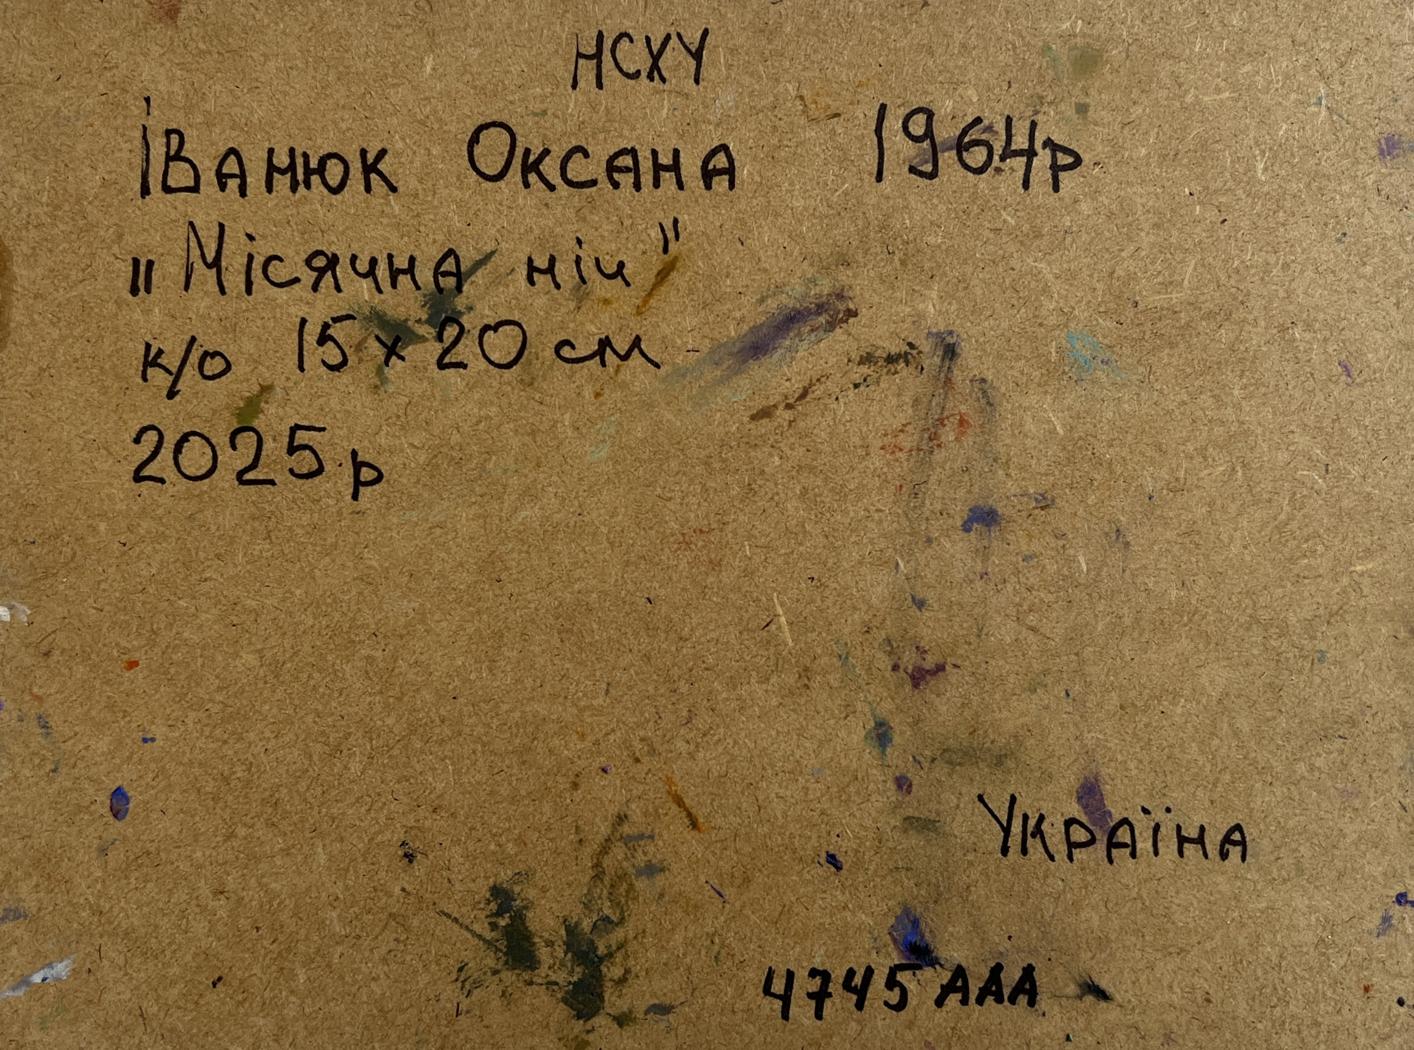 НСХУ
Іванюк Оксана 1964р
„Місячна ніч"
к/о 15 х 20 см
2025 р
Україна
4745 ААА